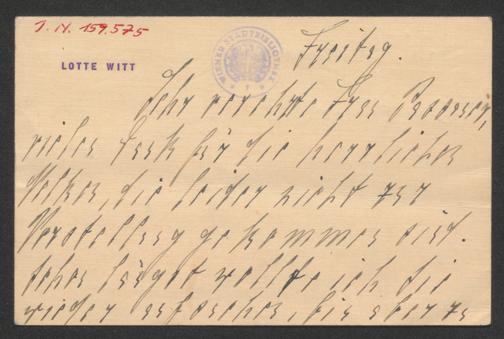 J. N. 159.575
LOTTE WITT
WIENER STADTBIBLIOTHEK
Freitag.
Sehr verehrte Frau
vielen Dank für die herrlichen
Nelken, die leider nicht zur
Vorstellung gekommen sind.
Schon längst wollte ich Sie
wieder aufsuchen, bin aber zu